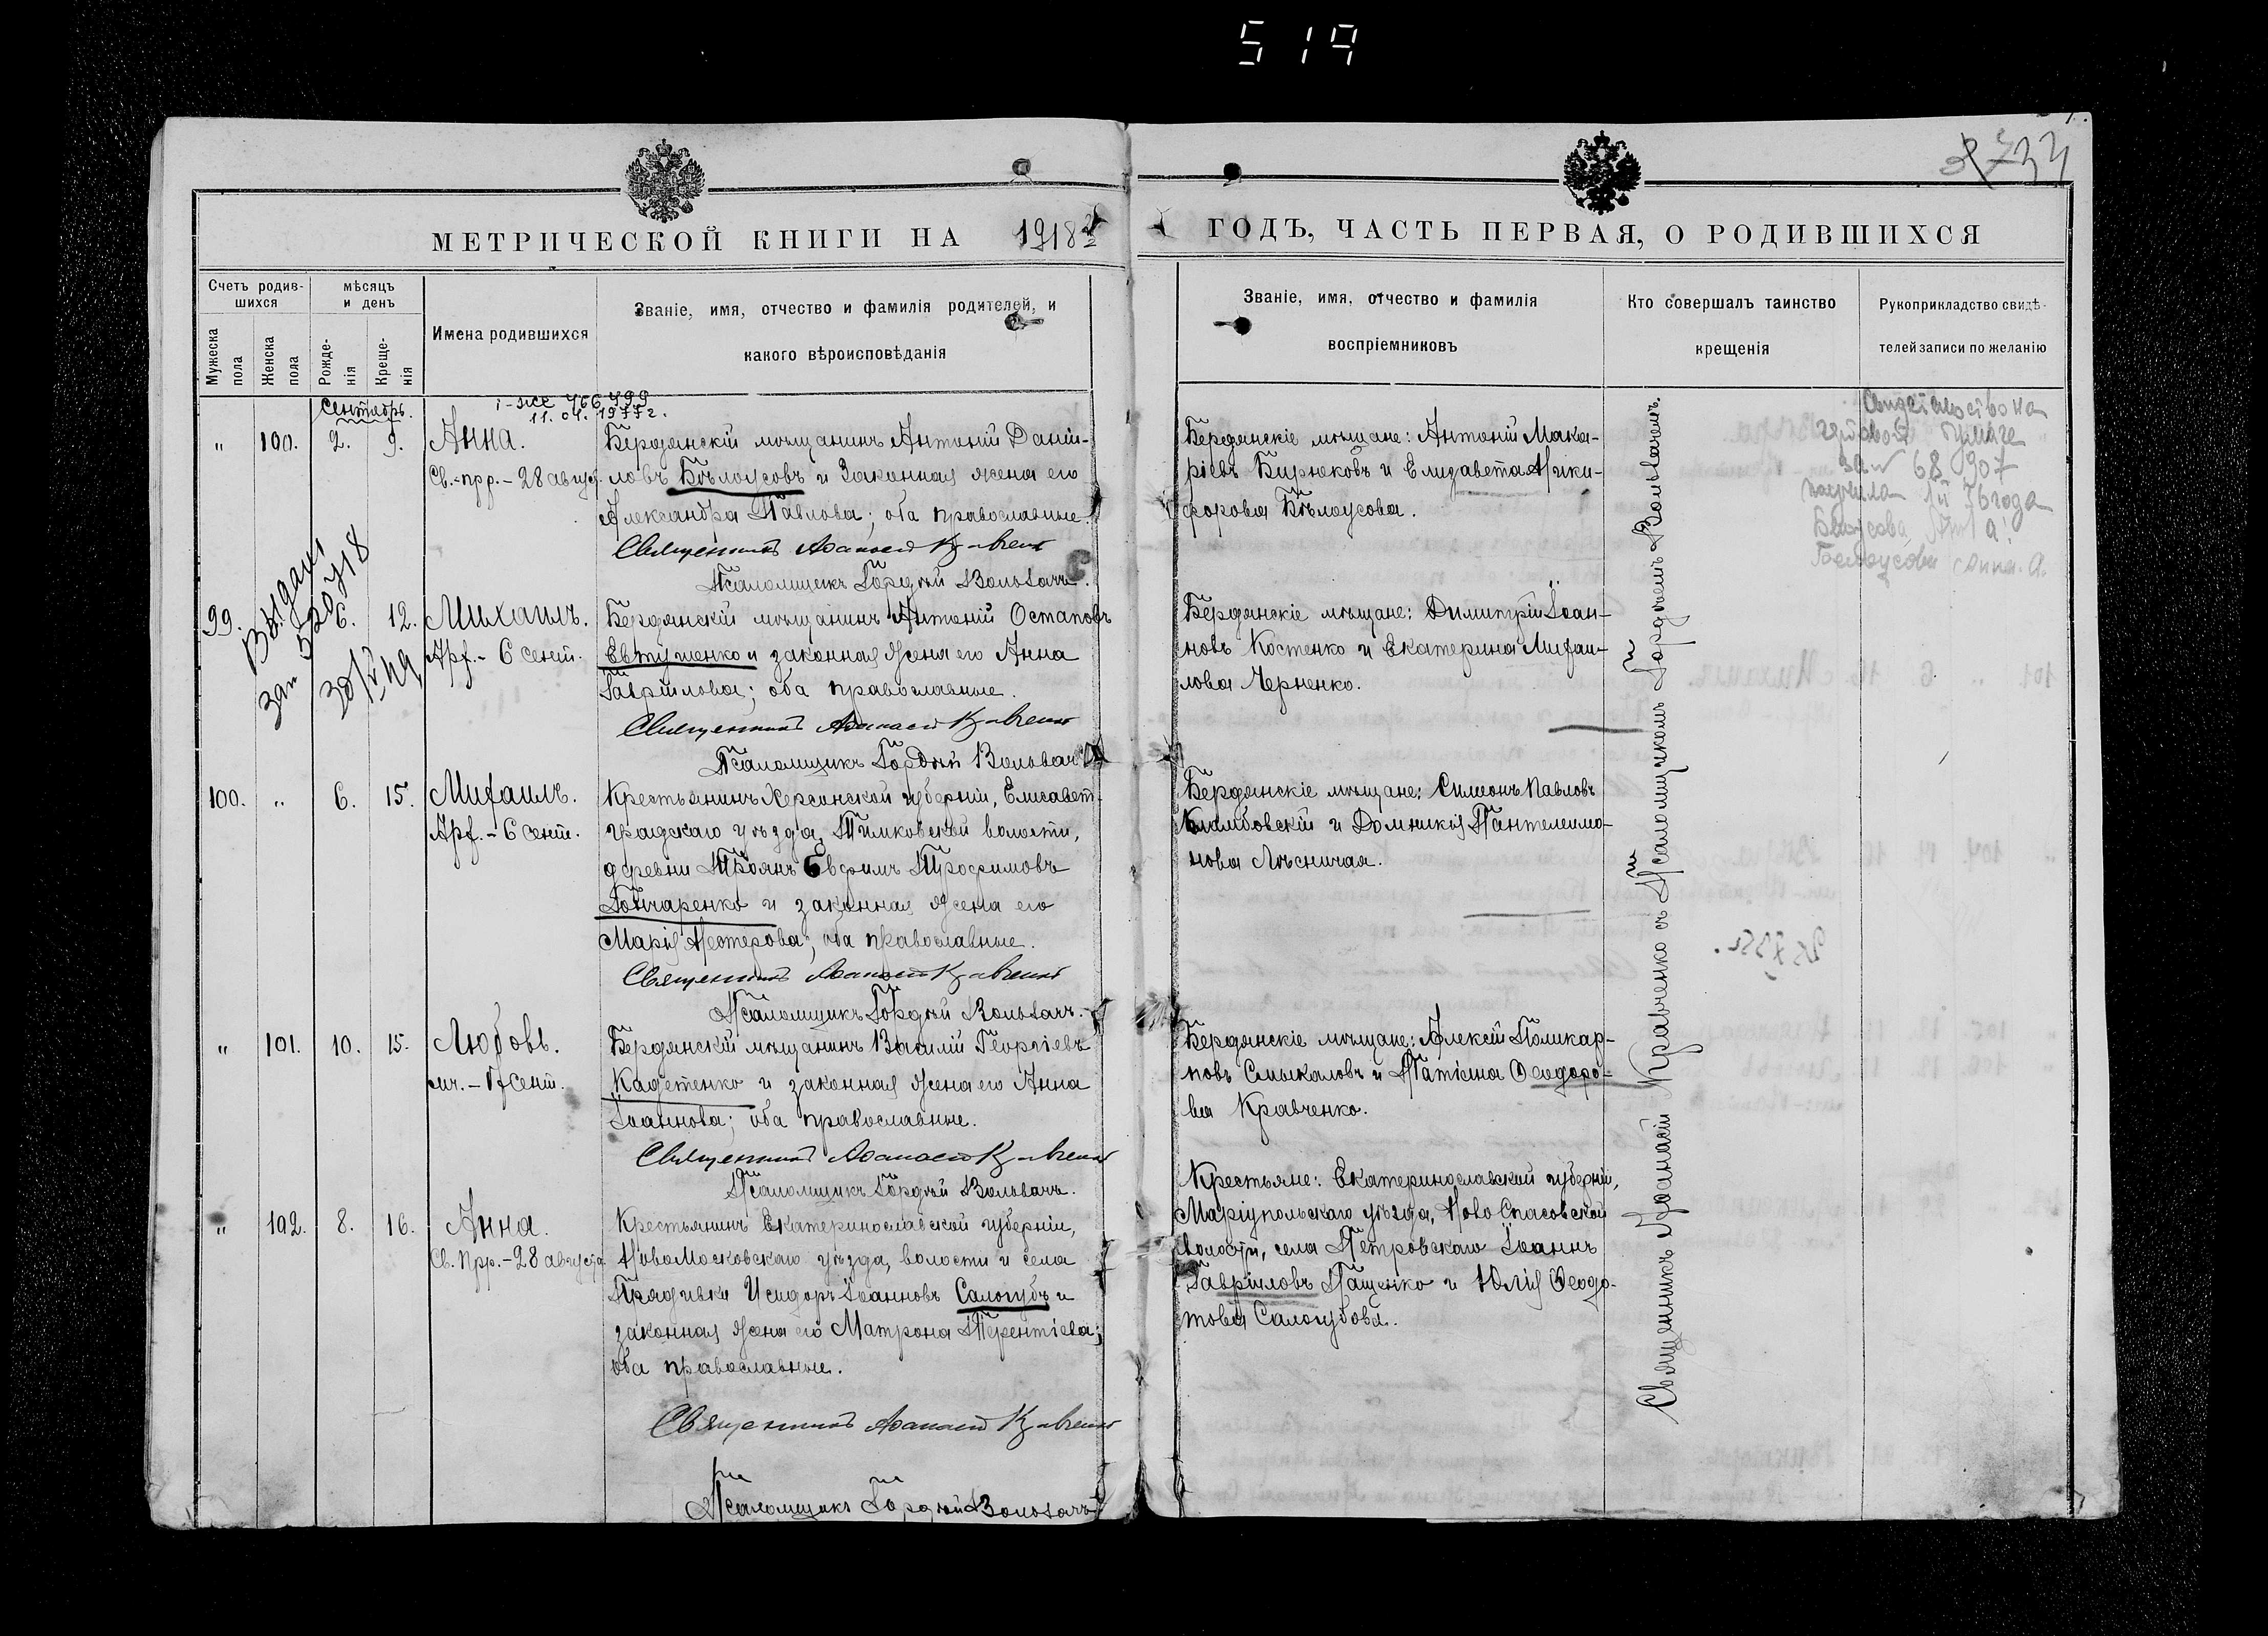 519
МЕТРИЧЕСКОЙ КНИГИ НА 1918 ГОДЪ, ЧАСТЬ ПЕРВАЯ, О РОДИВШИХСЯ
Счетъ родив-
шихся
Мужеска
пола
Женска
пола
мѣсяцъ
и день
Рожде-
нія
Креще-
нія
Имена родившихся
Званіе, имя, отчество и фамилія родителей, и
какого вѣроисповѣданія
Званіе, имя, отчество и фамилія
воспріемниковъ
Кто совершалъ таинство
крещенія
Рукоприкладство свидѣ-
телей записи по желанію
Сентябрь.
766799
11. 04. 1977г.
" 100. 2. 9. Анна.
Св.-пр.- 28 август.
Бердянскій мѣщанинъ Антоній Даніи-
ловъ Бѣлоусовъ и законная жена его
Александра Павлова; оба православные.
Священникъ Аѳанасій Кравченко
Псаломщикъ Гордѣй Вольвачъ.
Бердянскіе мѣщане: Антоній Мака-
ріевъ Бирюковъ и Елизавета Ники-
форова Бѣлоусова.
Свидетельство на
гербовой бумаге
за № 68 907
получила 76 года
Белоусова
Белоусова Анна. А.
99. 6. 12. Михаилъ.
Арх.- 6 сент.
Выдано
зап 520718
Бердянскій мѣщанинъ Антоній Остаповъ
Евтушенко и законная жена его Анна
Гавріилова; оба православные.
Священникъ Аѳанасій Кравченко
Псаломщикъ Гордѣй Вольвачъ
Бердянскіе мѣщане: Димитрій Іоан-
новъ Костенко и Екатерина Михаи-
лова Черненко.
100. " 6. 15. Михаилъ.
Арх.- 6 сент.
Крестьянинъ Херсонской губерніи, Елисавет-
градскаго уѣзда, Тимковской волости,
деревни Троянъ Евфимъ Трофимовъ
Гончаренко и законная жена его
Марія Нестерова; оба православные.
Священникъ Аѳанасій Кравченко
Псаломщикъ Гордѣй Вольвачъ.
Бердянскіе мѣщане: Симеонъ Павловъ
и Домникія Пантелеимо-
нова Лѣсничая.
" 101. 10. 15. Любовь.
мч.- 17 сент.
Бердянскій мѣщанинъ Василій Георгіевъ
Кадетенко и законная жена его Анна
Іоаннова; оба православные.
Священникъ Аѳанасій Кравченко
Псаломщикъ Гордѣй Вольвачъ.
Бердянскіе мѣщане: Алексій Поликар-
повъ Смыкаловъ и Татіана Ѳеодоро-
ва Кравченко.
" 102. 8. 16. Анна.
Св. Прр.- 28 августа
Крестьянинъ Екатеринославской губерніи,
НовоМосковскаго уѣзда, волости и села
Прядивки Исидоръ Іоанновъ Салогубъ и
законная жена его Матрона Терентіева;
оба православные.
Священникъ Аѳанасій Кравченко
Псаломщикъ Гордѣй Вольвачъ
Крестьяне: Екатеринославской губерніи,
Маріупольскаго уѣзда, Ново Спасовской
волости, села Петровскаго Іоаннъ
Гавріиловъ Пащенко и Юлія Ѳеодо-
това Салогубова.
Священникъ Аѳанасій Кравченко съ Псаломщикомъ Гордѣемъ Вольвачемъ.